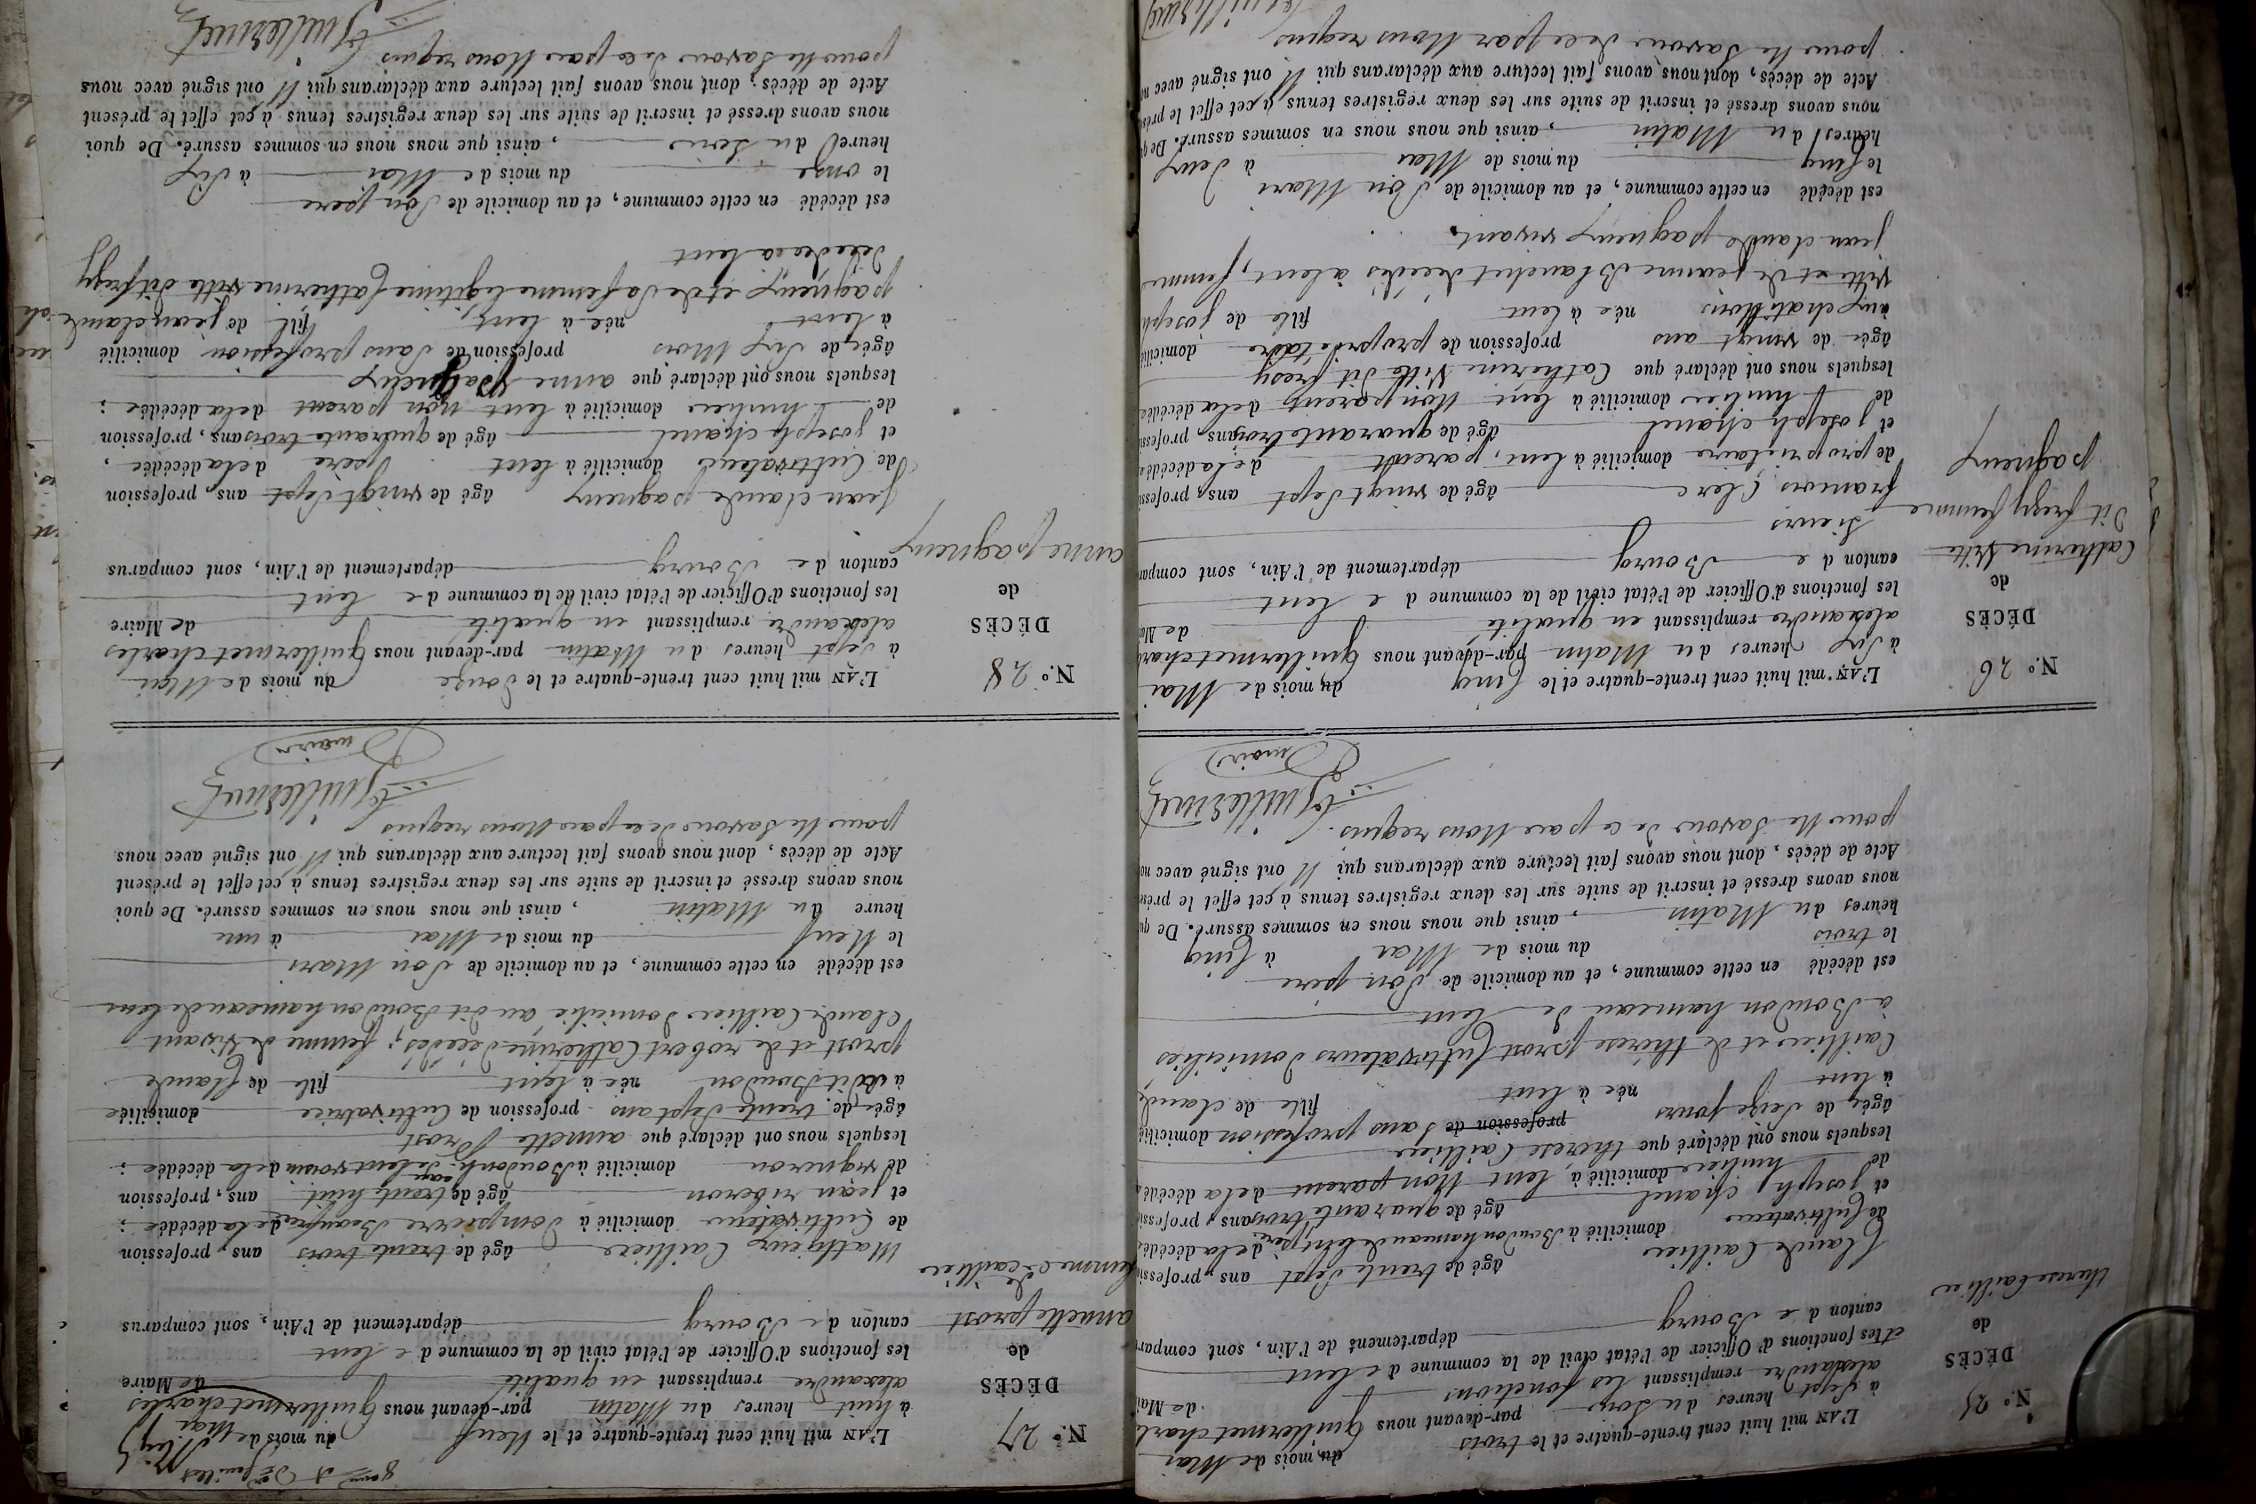 N.º 25
DÉCÈS
de
therese Caillier
L'AN mil huit cent trente-quatre et le trois du mois de Mai
à Sept heures du Soir par-devant nous Guillermet charl
alexandre remplissant les fonctions de Mai
et les fonctions d'Officier de l'état civil de la commune de lent
canton de Bourg département de l'Ain, sont compar
Claude Caillier âgé de trente Sept ans, profession
de Cultivateur domicilié à Boudon hameau de lent père de la décédée
et joseph chanel âgé de quarante trois ans, profess
de huilier domicilié à lent Non parent de la décédé
lesquels nous ont déclaré que therese Caillier
âgée de Seize jours profession de Sans profession domicilié
à lent née à lent fille de claude
Caillier et de thérèse prost Cultivateurs domiciliés
à Boudon hameau de lent
est décédé en cette commune, et au domicile de Son père
le trois du mois de Mai à Cinq
heures du Matin, ainsi que nous nous en sommes assuré. De qu
nous avons dressé et inscrit de suite sur les deux registres tenus à cet effet le prése
Acte de décès, dont nous avons fait lecture aux déclarans qui N ont signé avec no
pour Ne Savoir de ce par Nous requis.
Guillermet
maire
N.º 26
DÉCÈS
de
Catherine Vitte
dit frezy femme
pagneux
L'AN mil huit cent trente-quatre et le Cinq du mois de Mai
à Six heures du Matin par-devant nous Guillermet charl
alexandre remplissant en qualité de Ma
les fonctions d'Officier de l'état civil de la commune de lent
canton de Bourg département de l'Ain, sont compar
Sieurs
francois Clerc âgé de vingt Sept ans, profess
de proprietaire domicilié à lent, parent de la décédé
et joseph chanel âgé de quarante trois ans, profess
de huilier domicilié à lent Non parent de la décédé
lesquels nous ont déclaré que Catherine Vitte dit fresy
âgée de vingt ans profession de propriétaire domicilié
aux chatillons née à lent fille de joseph
Vitte et de jeanne Blanchet décédés à lent, femme
jean claude pagneux vivant.
est décédé en cette commune, et au domicile de Son Mari
le Cinq du mois de Mai à Deux
heures du Matin, ainsi que nous nous en sommes assuré. De qu
nous avons dressé et inscrit de suite sur les deux registres tenus à cet effet le prése
Acte de décès, dont nous avons fait lecture aux déclarans qui N ont signé avec no
pour Ne Savoir de ce par Nous requis
Guillermet
N.º 27
DÉCÈS
de
annette prost
femme de caillier
L'AN mil huit cent trente-quatre et le Neuf du mois de Mai
à huit heures du Matin par-devant nous Guillermet charles
alexandre remplissant en qualité de Maire
les fonctions d'Officier de l'état civil de la commune de lent
canton de Bourg département de l'Ain, sont comparus
Mathieux Caillier âgé de trente trois ans, profession
de Cultivateur domicilié à Dompierre Beaufrere de la décédée;
et jean riberon âgé de trente huit ans, profession
de vigneron domicilié à Boudon h. de lent voisin de la décédée:
lesquels nous ont déclaré que annette Prost
âgée de trente Sept ans profession de Cultivatrice domicilié
à dit Boudon née à lent fille de Claude
prost et de robert Catherine décédés; femme de vivant
Claude Caillier domicilié au dit Boudon hameau de lent
est décédé en cette commune, et au domicile de Son Mari
le Neuf du mois de Mai à une
heure du Matin, ainsi que nous nous en sommes assuré. De quoi
nous avons dressé et inscrit de suite sur les deux registres tenus à cet effet le présent
Acte de décès, dont nous avons fait lecture aux déclarans qui N ont signé avec nous
pour Ne Savoir de ce par Nous requis
Guillermet
maire
N.º 28
DÉCÈS
de
anne pagneux
L'AN mil huit cent trente-quatre et le Douze du mois de Mai
à Sept heures du Matin par-devant nous Guillermet charles
alexandre remplissant en qualité de Maire
les fonctions d'Officier de l'état civil de la commune de lent
canton de Bourg département de l'Ain, sont comparus
Jean claude pagneux âgé de vingt Sept ans, profession
de Cultivateur domicilié à lent père de la décédée,
et joseph chanel âgé de quarante trois ans, profession
de huilier domicilié à lent Non parent de la décédée:
lesquels nous ont déclaré que anne Pagneux
âgée de Six Mois profession de Sans profession domicilié
à lent née à lent fille de jean claude
pagneux et de Sa femme legitime Catherine vitte dit frezy
décédée a lent
est décédé en cette commune, et au domicile de Son père
le onze du mois de Mai à Six
heures du Soir, ainsi que nous nous en sommes assuré. De quoi
nous avons dressé et inscrit de suite sur les deux registres tenus à cet effet le présent
Acte de décès, dont nous avons fait lecture aux déclarans qui N ont signé avec nous
pour Ne Savoir de ce par Nous requis
Guillermet